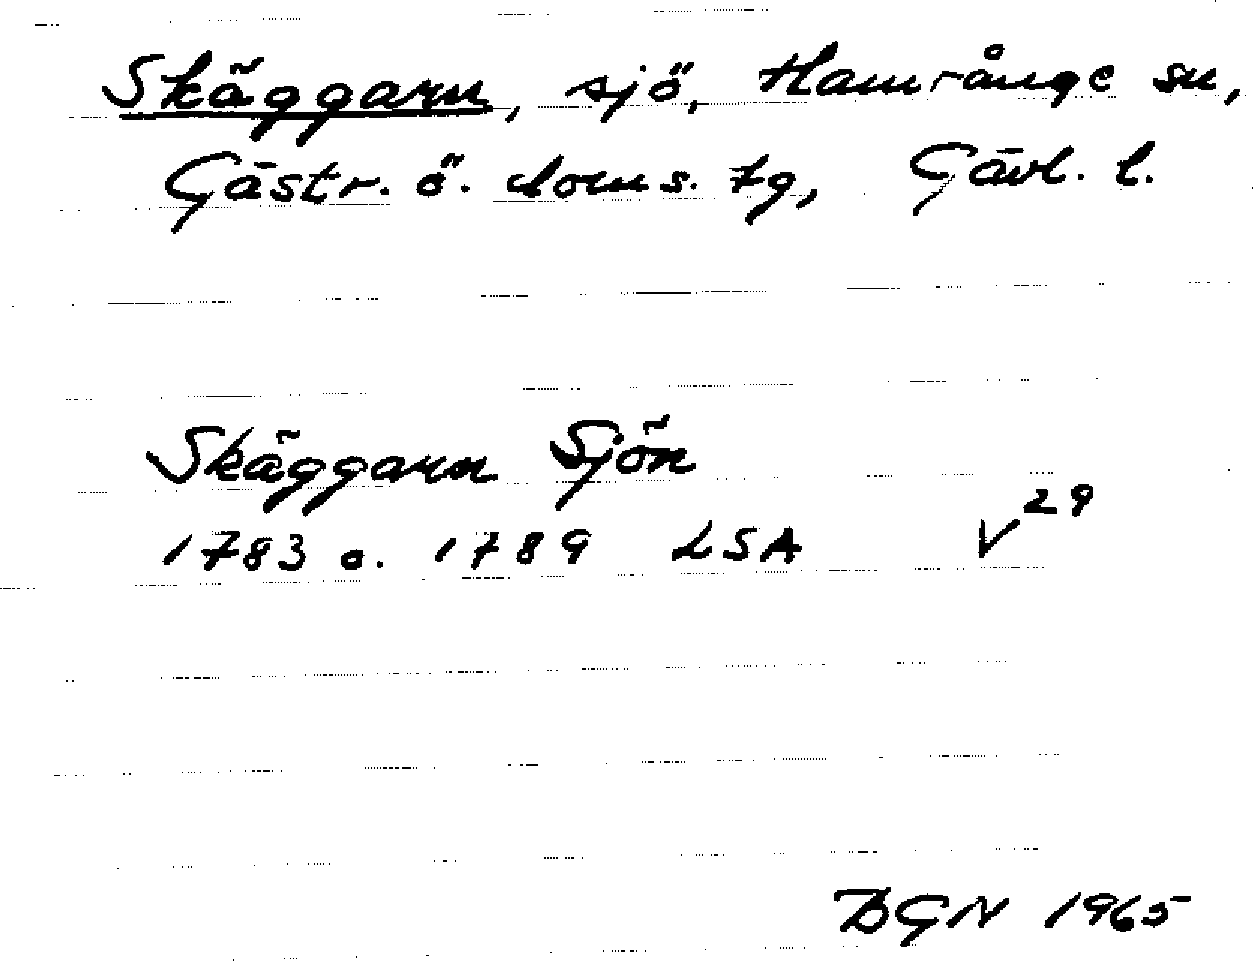 Skäggarn, sjö, Hamrånge sn,
Gästr. ö. doms. tg, Gävl. l.
Skäggarn Sjön
1783 o. 1789 LSA V 29
DGN 1965